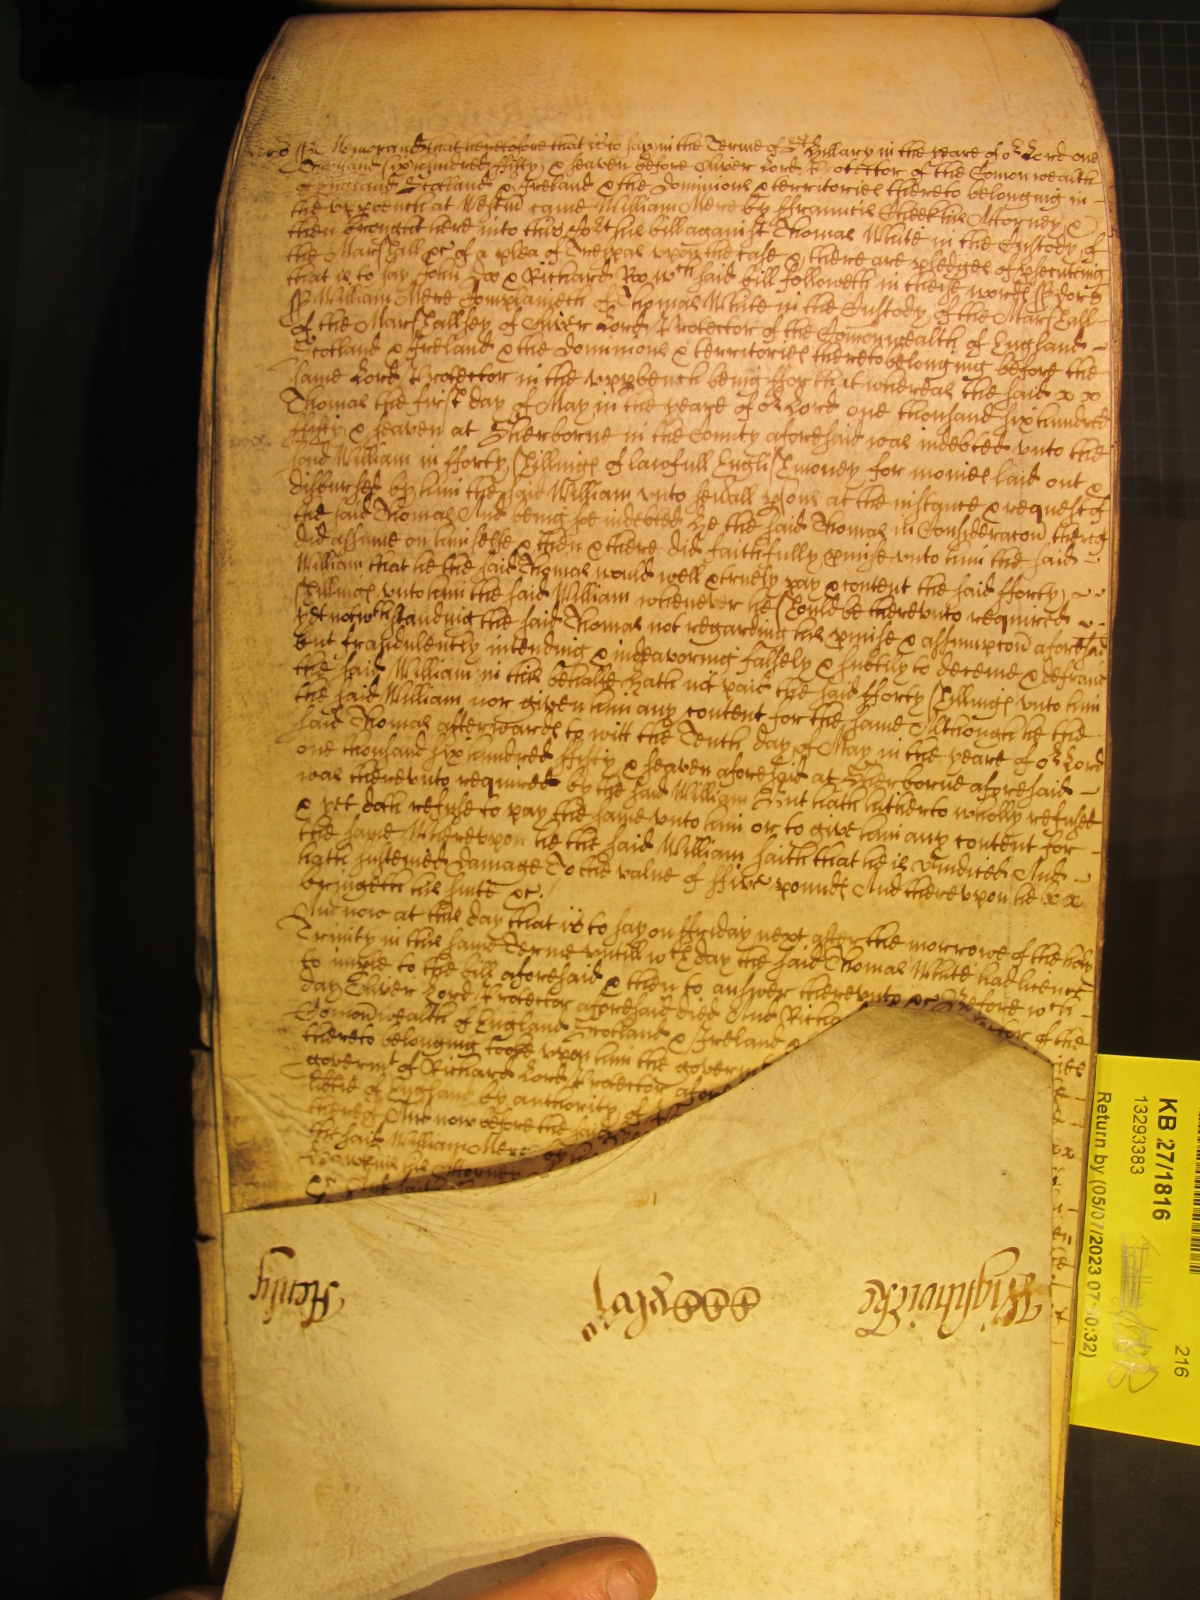 Memorand that heretofore that is to say in the Terme of St Hillary in the yeare of or Lord one
Thousand six hundred ffifty & seaven before Oliver Lord Protector of the Comonwealth
of England Scotland & Ireland & the Dominions & territories thereto belonging in
the upp bench at Westm came William Mere by ffrauncis Cheeke his Attorney &
then brought here into this Cort his bill against Thomas White in the Custody of
the Marshall &c of a plea of Trespas upon the case & there are pledges of psecuting
that is to say John Doo & Richard Roo wch said bill followeth in these words ss Dors
ss William Mere Complaineth of Thomas White in the Custody of the Marshall
of the Marshallsey of Oliver Lord Protector of the Comonwealth of England
Scotland & Ireland & the Dominions & territories thereto belonging before the
same Lord Protector in the upp bench being ffor that whereas the said x x
Thomas the first day of May in the yeare of or Lord one thousand six hundred
ffifty & seaven at Sherborne in the County aforesaid was indebted unto the
said William in fforty shillings of lawfull English money for monies laid out &
disbursed by him the said William unto sevall psons at the instance & request of
the said Thomas And being soe indebted he the said Thomas in Consideracon thereof
did assume on himselfe & then & there did faithfully pmise unto him the said
William that he the said Thomas would well & truely pay & content the said fforty
shillings unto him the said William whenever he should be thereunto required
yet notwthstanding the said Thomas not regarding his pmise & assumpcon aforesaid
but fraudulently intending & indeavoring falsely & subtily to deceive & defraud
the said William in this behalfe hath not paid the said fforty shillings unto him
the said William nor given him any content for the same Although he the
said Thomas afterwards to witt the Tenth day of May in the yeare of or Lord
one thousand six hundred ffifty & seaven aforesaid at Sherborne aforesaid
was thereunto required by the said William But hath hitherto wholly refused
& yet doth refuse to pay the same unto him or to give him any content for
the same Whereupon he the said William saith that he is Damnified And
hath susteined Damage To the value of ffive pounds And thereupon he x x
bringeth his suite &c
And now at this day that is to say on ffriday next after the morrowe of the holy
Trinity in this same Terme untill wch day the said Thomas White had licence
to imple to the bill aforesaid & then to answer thereunto &c Before wch
day Oliver Lord Protector aforesaid died And Richa
Comonwealth of England Scotland & Ireland & of the
thereto belonging tooke upon him the governt
governmt of Richard Lord Protector afore
of England by authority of
thereof And now before the said
the said William Mere by
his Attorney
Wightwicke
Henly
KB 27/1816
13293383
216
Return by (05/07/2023 07: 0:32)